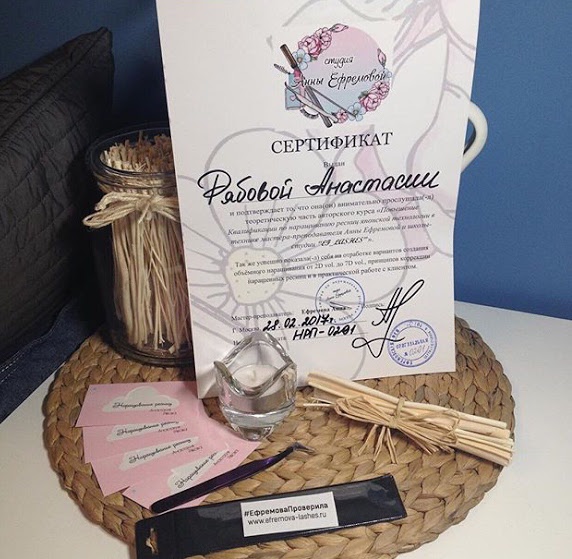 студия
Анны Ефремовой
СЕРТИФИКАТ
Выдан
Рябовой Анастасии
и подтверждает то, что он(она) внимательно прослушал(-а)
теоретическую часть авторского курса «Повышение
Квалификации по наращиванию ресниц японской технологии в
технике мастера-преподавателя Анны Ефремовой и школы-
студии "EF_LASHES"».
Так же успешно показал(-а) себя на отработке вариантов создания
объёмного наращивания от 2D vol. до 7D vol., принципов коррекции
наращенных ресниц и в практической работе с клиентом.
Мастер-преподаватель: Ефремова Анна
Подпись:
Г. Москва 28.02.2017г.
НРП-0201
Наращивание ресниц
Наращивание ресниц
Наращивание ресниц
Наращивание
#ЕфремоваПроверила
www.efremova-lashes.ru